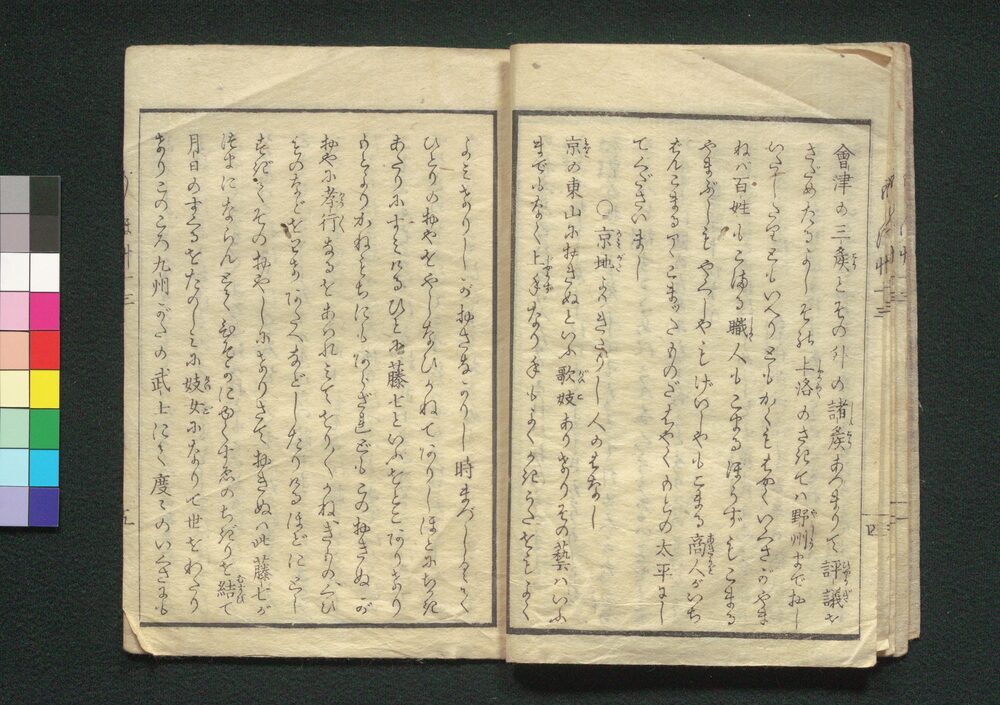 會津の三矦とその外の諸矦あつまりて評議を
さだめたるよしそれ上洛のさきては野州まで出
いたしたりともいへりともかくもはやくいくさがやま
ねば百姓もこまる職人もこまるぼうずもこまる
やまぶしもやくしやもげいしやもこまる商人がいち
ばんこまるアヽこまつたものだはやくもとの太平にし
てくださいまし
○京地よりきたりし人のはなし
京の東山におきぬといふ歌妓ありけりその藝はいふ
までもなく上手なり手もよくかきうたをもよく
よみけりしがおさなかりし時まづしくて
ひとりのおやをやしなひかねてありしほどにちかき
あたりにすみけるひと藤七といふをとこありけり
もとよりかねもちにもあらざれどもこのおきぬが
おやに孝行なるをあはれみてをりをりかねぎものくひ
ものなどをとりあたへなどしたりけるほどにとし
そのおやしにけりさておきぬは此藤七が
つまにならんとてひそかにすゑのちぎりを結て
月日のすぐるをたのしみに妓女になりて世をわたり
けりこのころ九州がたの武士にて度々のいくさにも